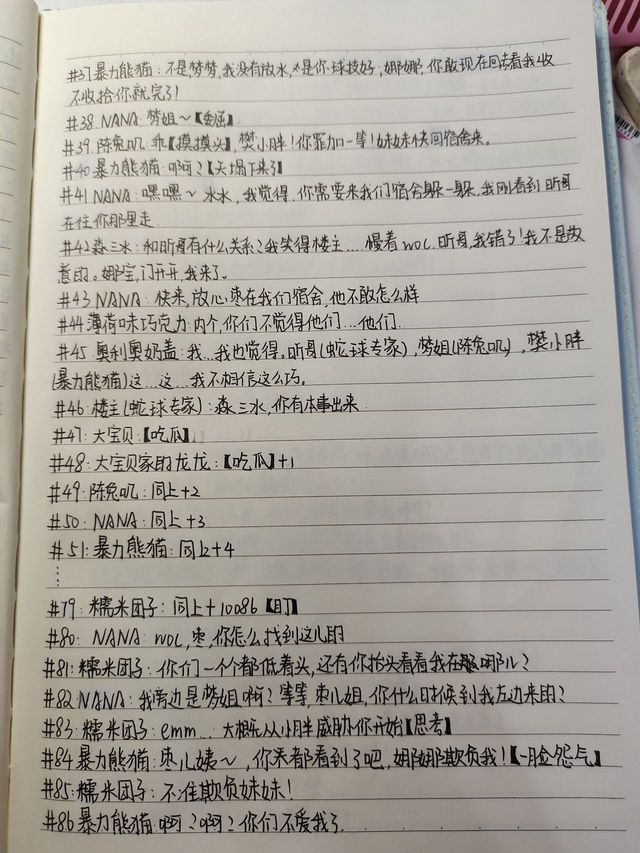 #37暴力熊猫：不是梦梦,我没有放水,是你球技好,娜娜,你敢现在回去看我收
不收拾你就完了!
#38.NANA:梦姐～【委屈】
#39.陈兔叽：乖【摸摸头】,樊小胖!你罪加一等!妹妹快回宿舍来。
#40 暴力熊猫：啊?【天塌下来了】
#41 NANA:嘿嘿～水水,我觉得,你需要来我们宿舍躲一躲,我刚看到昕哥
在往你那里走.
#42淼三水：和昕哥有什么关系?我笑得楼主....慢着woc.昕哥,我错了!我不是故
意的。娜宝,门开开,我来了。
#43 NANA:快来,放心,枣在我们宿舍,他不敢怎么样
#44薄荷味巧克力:内个,你们不觉得他们...他们.
#45.奥利奥奶盖：我...我也觉得。昕哥(蛇球专家),梦姐(陈兔叽),樊小胖
(暴力熊猫)这...这...我不相信这么巧。
#46:楼主(蛇球专家):淼三水,你有本事出来.
#47:大宝贝:【吃瓜】
#48:大宝贝家的龙龙:【吃瓜】+1
#49:陈兔叽:同上+2
#50:NANA:同上+3
#51:暴力熊猫:同上+4
⋮
#79:糯米团子:同上+10086【盯】
#80: NANA:woc,枣,你怎么找到这儿的
#81:糯米团子:你们一个个都低着头,还有你抬头看看我在哪儿?
#82:NANA:我旁边是梦姐啊?等等,枣儿姐,你什么时候到我左边来的?
#83:糯米团子:emm...大概从小胖威胁你开始【思考】
#84暴力熊猫:枣儿姨～,你都看到了吧,娜娜欺负我!【一脸怨气】
#85:糯米团子:不准欺负妹妹!
#86暴力熊猫:啊?啊?你们不爱我了.